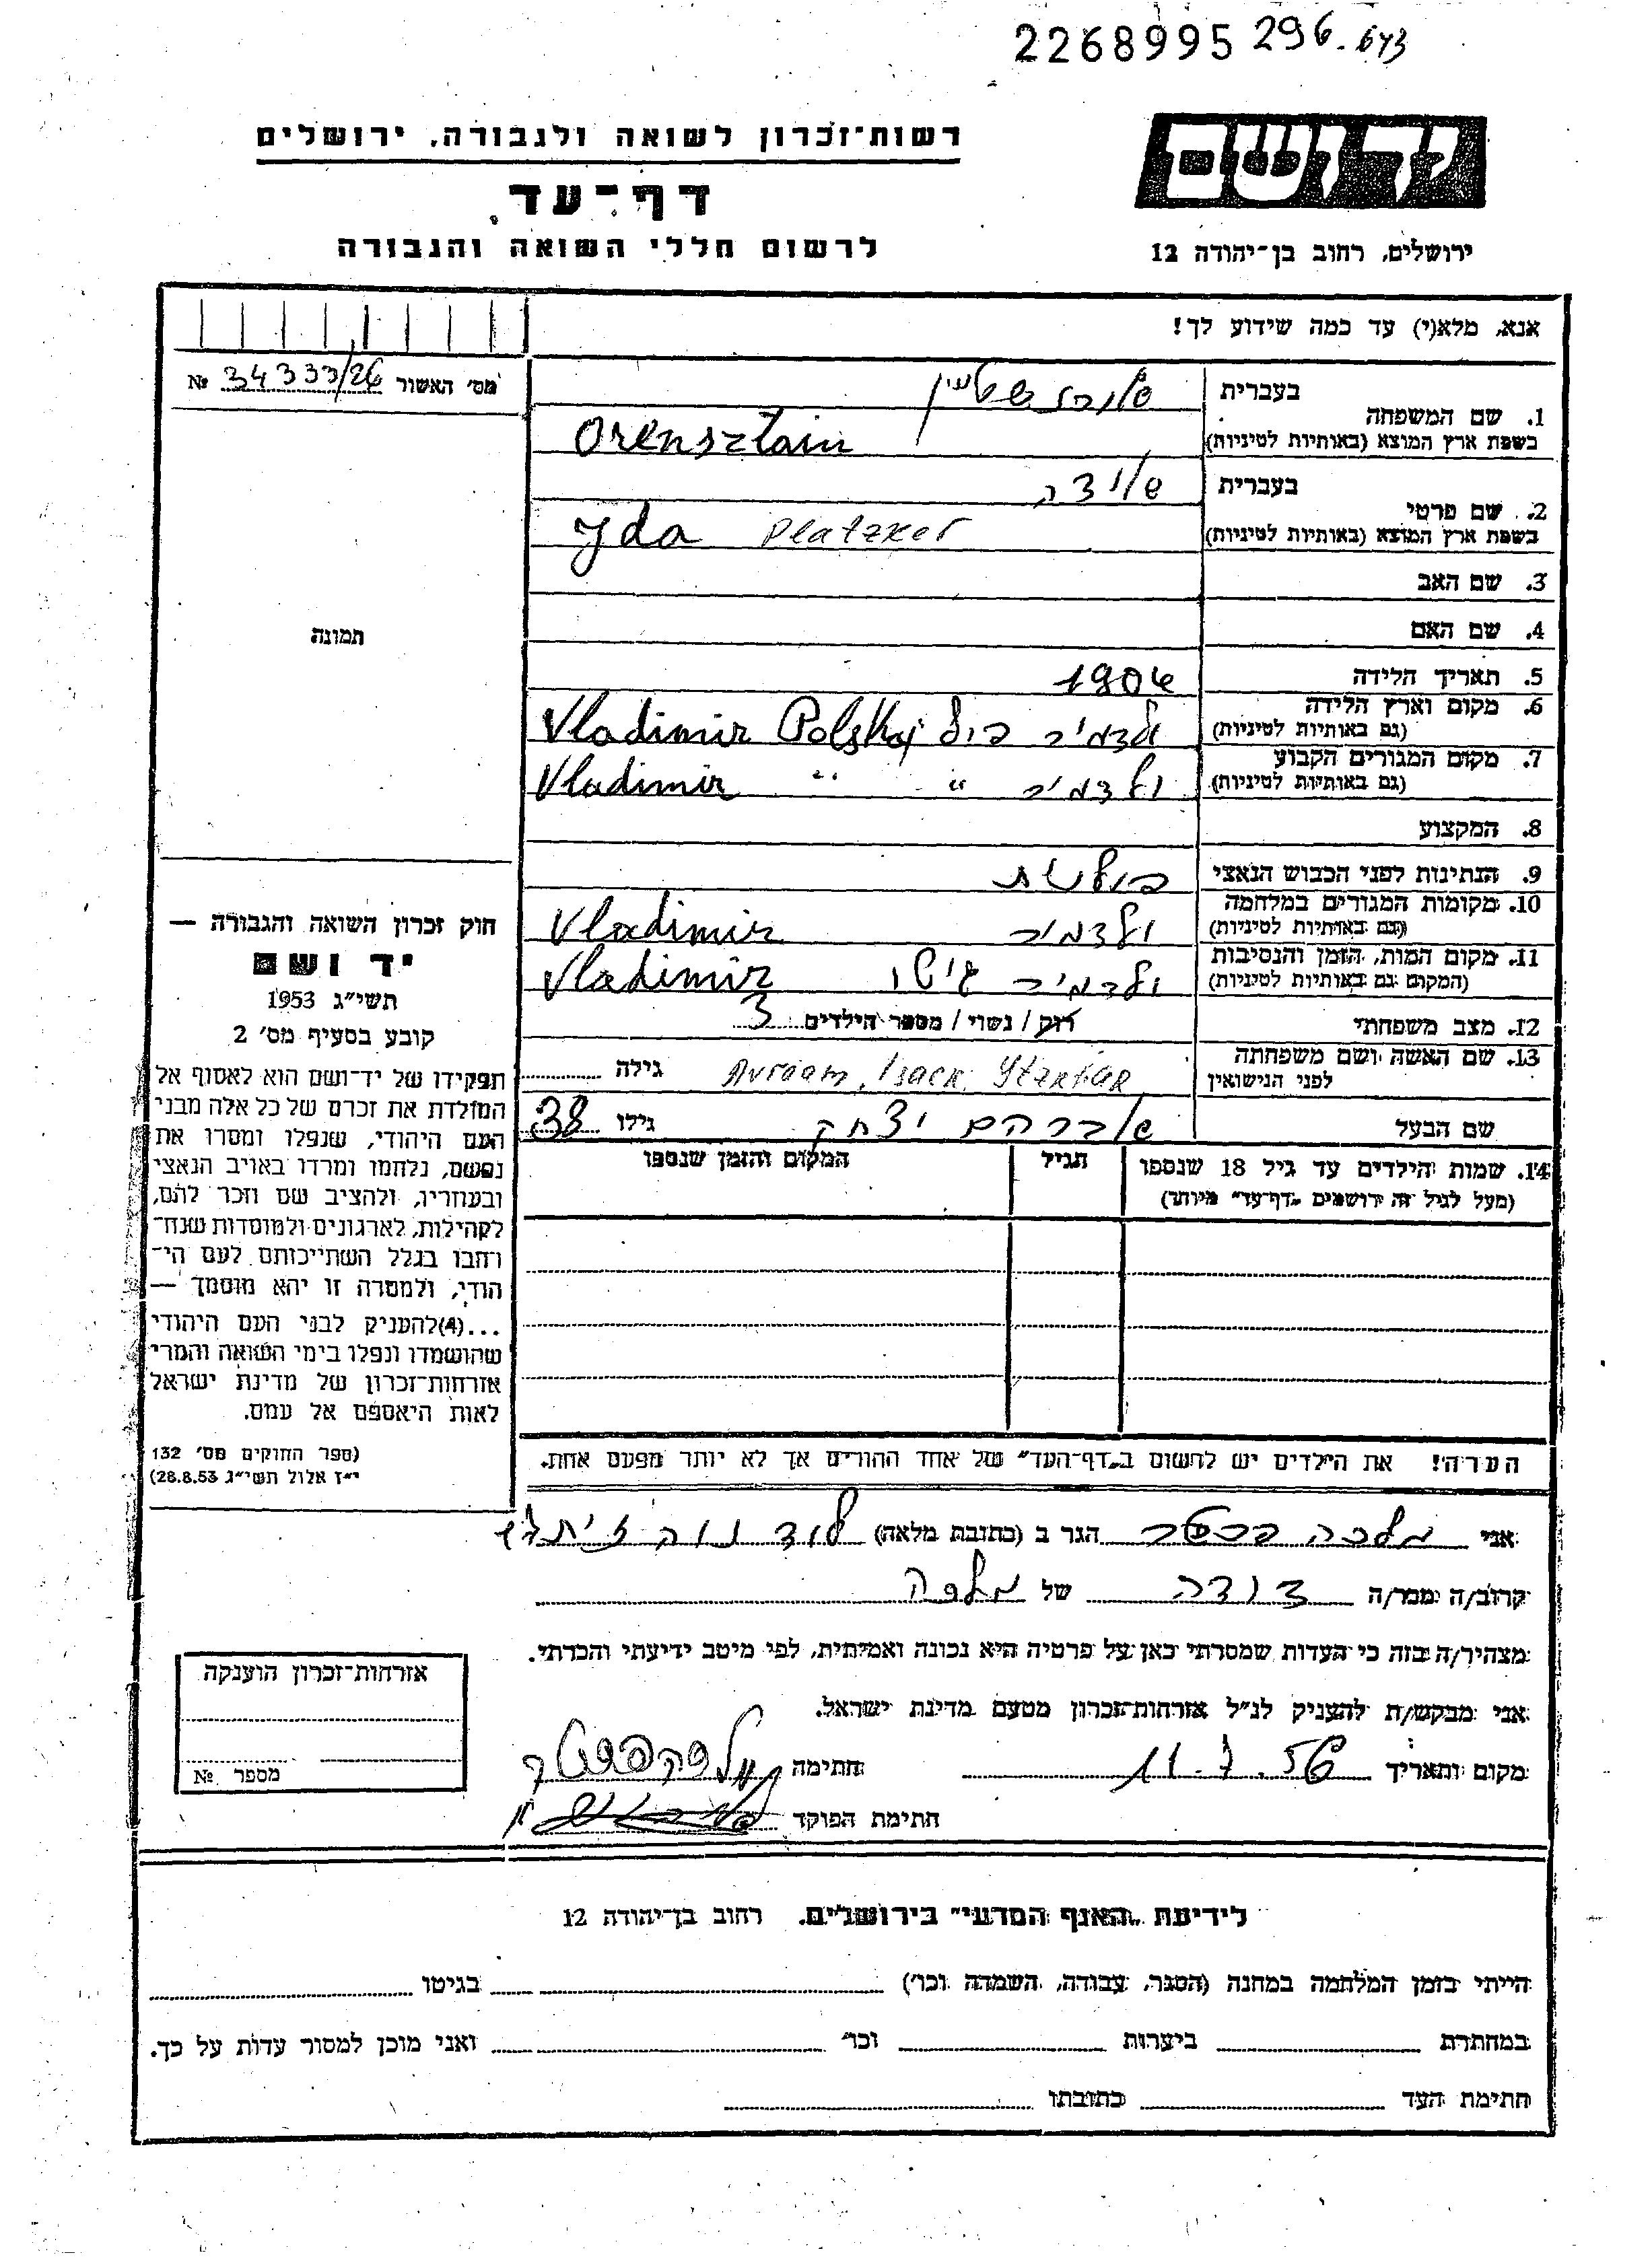 2268995 296.643
רשות־זכרון לשואה ולגבורה, ירושלים
יד ושם
דף־עד
לרשום חללי השואה והגבורה
ירושלים, רחוב בן־יהודה 12
אנא, מלא(י) עד כמה שידוע לך!
מס׳ האשור 34333/26 №
1. שם המשפחה
בעברית אורנשטיין
בשפת ארץ המוצא (באותיות לטיניות) Orensztain
2. שם פרטי
בעברית אידה
בשפת ארץ המוצא (באותיות לטיניות) Yda Platzker
3. שם האב
4. שם האם
תמונה
5. תאריך הלידה 1904
6. מקום וארץ הלידה
(גם באותיות לטיניות) ולדמיר פול Vladimir Polskaj
7. מקום המגורים הקבוע
(גם באותיות לטיניות) ולדמיר " " Vladimir
8. המקצוע
9. הנתינות לפני הכבוש הנאצי פולשת
10. מקומות המגורים במלחמה
(גם באותיות לטיניות) ולדמיר Vladimir
11. מקום המות, הזמן והנסיבות
(המקום גם באותיות לטיניות) ולדמיר גיטו Vladimir
12. מצב משפחתי רוק / נשוי / מספר הילדים 3
13. שם האשה ושם משפחתה
לפני הנישואין Avraam, Isack, Ytzkhak גילה
שם הבעל אברהם יצחק גילו 38
14. שמות הילדים עד גיל 18 שנספו
(מעל לגיל זה ירושמים „דף־עד״ מיוחד)
הגיל
המקום והזמן שנספו
חוק זכרון השואה והגבורה —
יד ושם
תשי״ג 1953
קובע בסעיף מס׳ 2
תפקידו של יד־ושם הוא לאסוף אל
המולדת את זכרם של כל אלה מבני
העם היהודי, שנפלו ומסרו את
נפשם, נלחמו ומרדו באויב הנאצי
ובעוזריו, ולהציב שם וזכר להם,
לקהילות, לארגונים ולמוסדות שנח־
רחבו בגלל השתייכותם לעם הי־
הודי, ולמטרה זו יהא מוסמך —
...(4)להעניק לבני העם היהודי
שהושמדו ונפלו בימי השואה והמרי
אזרחות־זכרון של מדינת ישראל
לאות היאספם אל עמם.
(ספר החוקים מס׳ 132
י״ז אלול תשי״ג 28.8.53)
הערה! את הילדים יש לרשום ב„דף־העד״ של אחד ההורים אך לא יותר מפעם אחת.
אני מלכה הגר ב (כתובת מלאה) לוד נוה זית
קרוב/ה ממר/ה דודה של מלכה
מצהיר/ה בזה כי העדות שמסרתי כאן על פרטיה היא נכונה ואמיתית, לפי מיטב ידיעתי והכרתי.
אני מבקש/ת להעניק לנ״ל אזרחות־זכרון מטעם מדינת ישראל.
מקום ותאריך 11.7.56 חתימה
חתימת הפוקד
אזרחות־זכרון הוענקה
מספר №
לידיעת „האגף המדעי״ בירושלים, רחוב בן־יהודה 12
הייתי בזמן המלחמה במחנה (הסגר, עבודה, השמדה וכו׳) בגיטו
במחתרת ביערות וכו׳ ואני מוכן למסור עדות על כך.
חתימת העד כתובתו